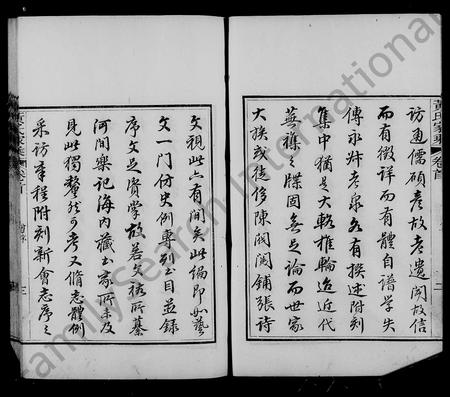 黃氏家乘 卷首 二
訪通儒碩彥故老遺聞故信
而有徵詳而有體自譜學失
傳永叔老泉各有撰述附刻
集中猶是大輅椎輪迨近代
蕪穢之牒固無足論而世家
大族或後侈陳閥閱鋪張詩
文視此亦有間矣此編即如藝
文一門仿史例專列書目並錄
序文足資掌故若文裕所纂
河間樂記海內藏書家所未及
見此獨釐然可考又脩志體例
采訪章程附刻新會志序之
黃氏家乘 卷首 三
FamilySearch International